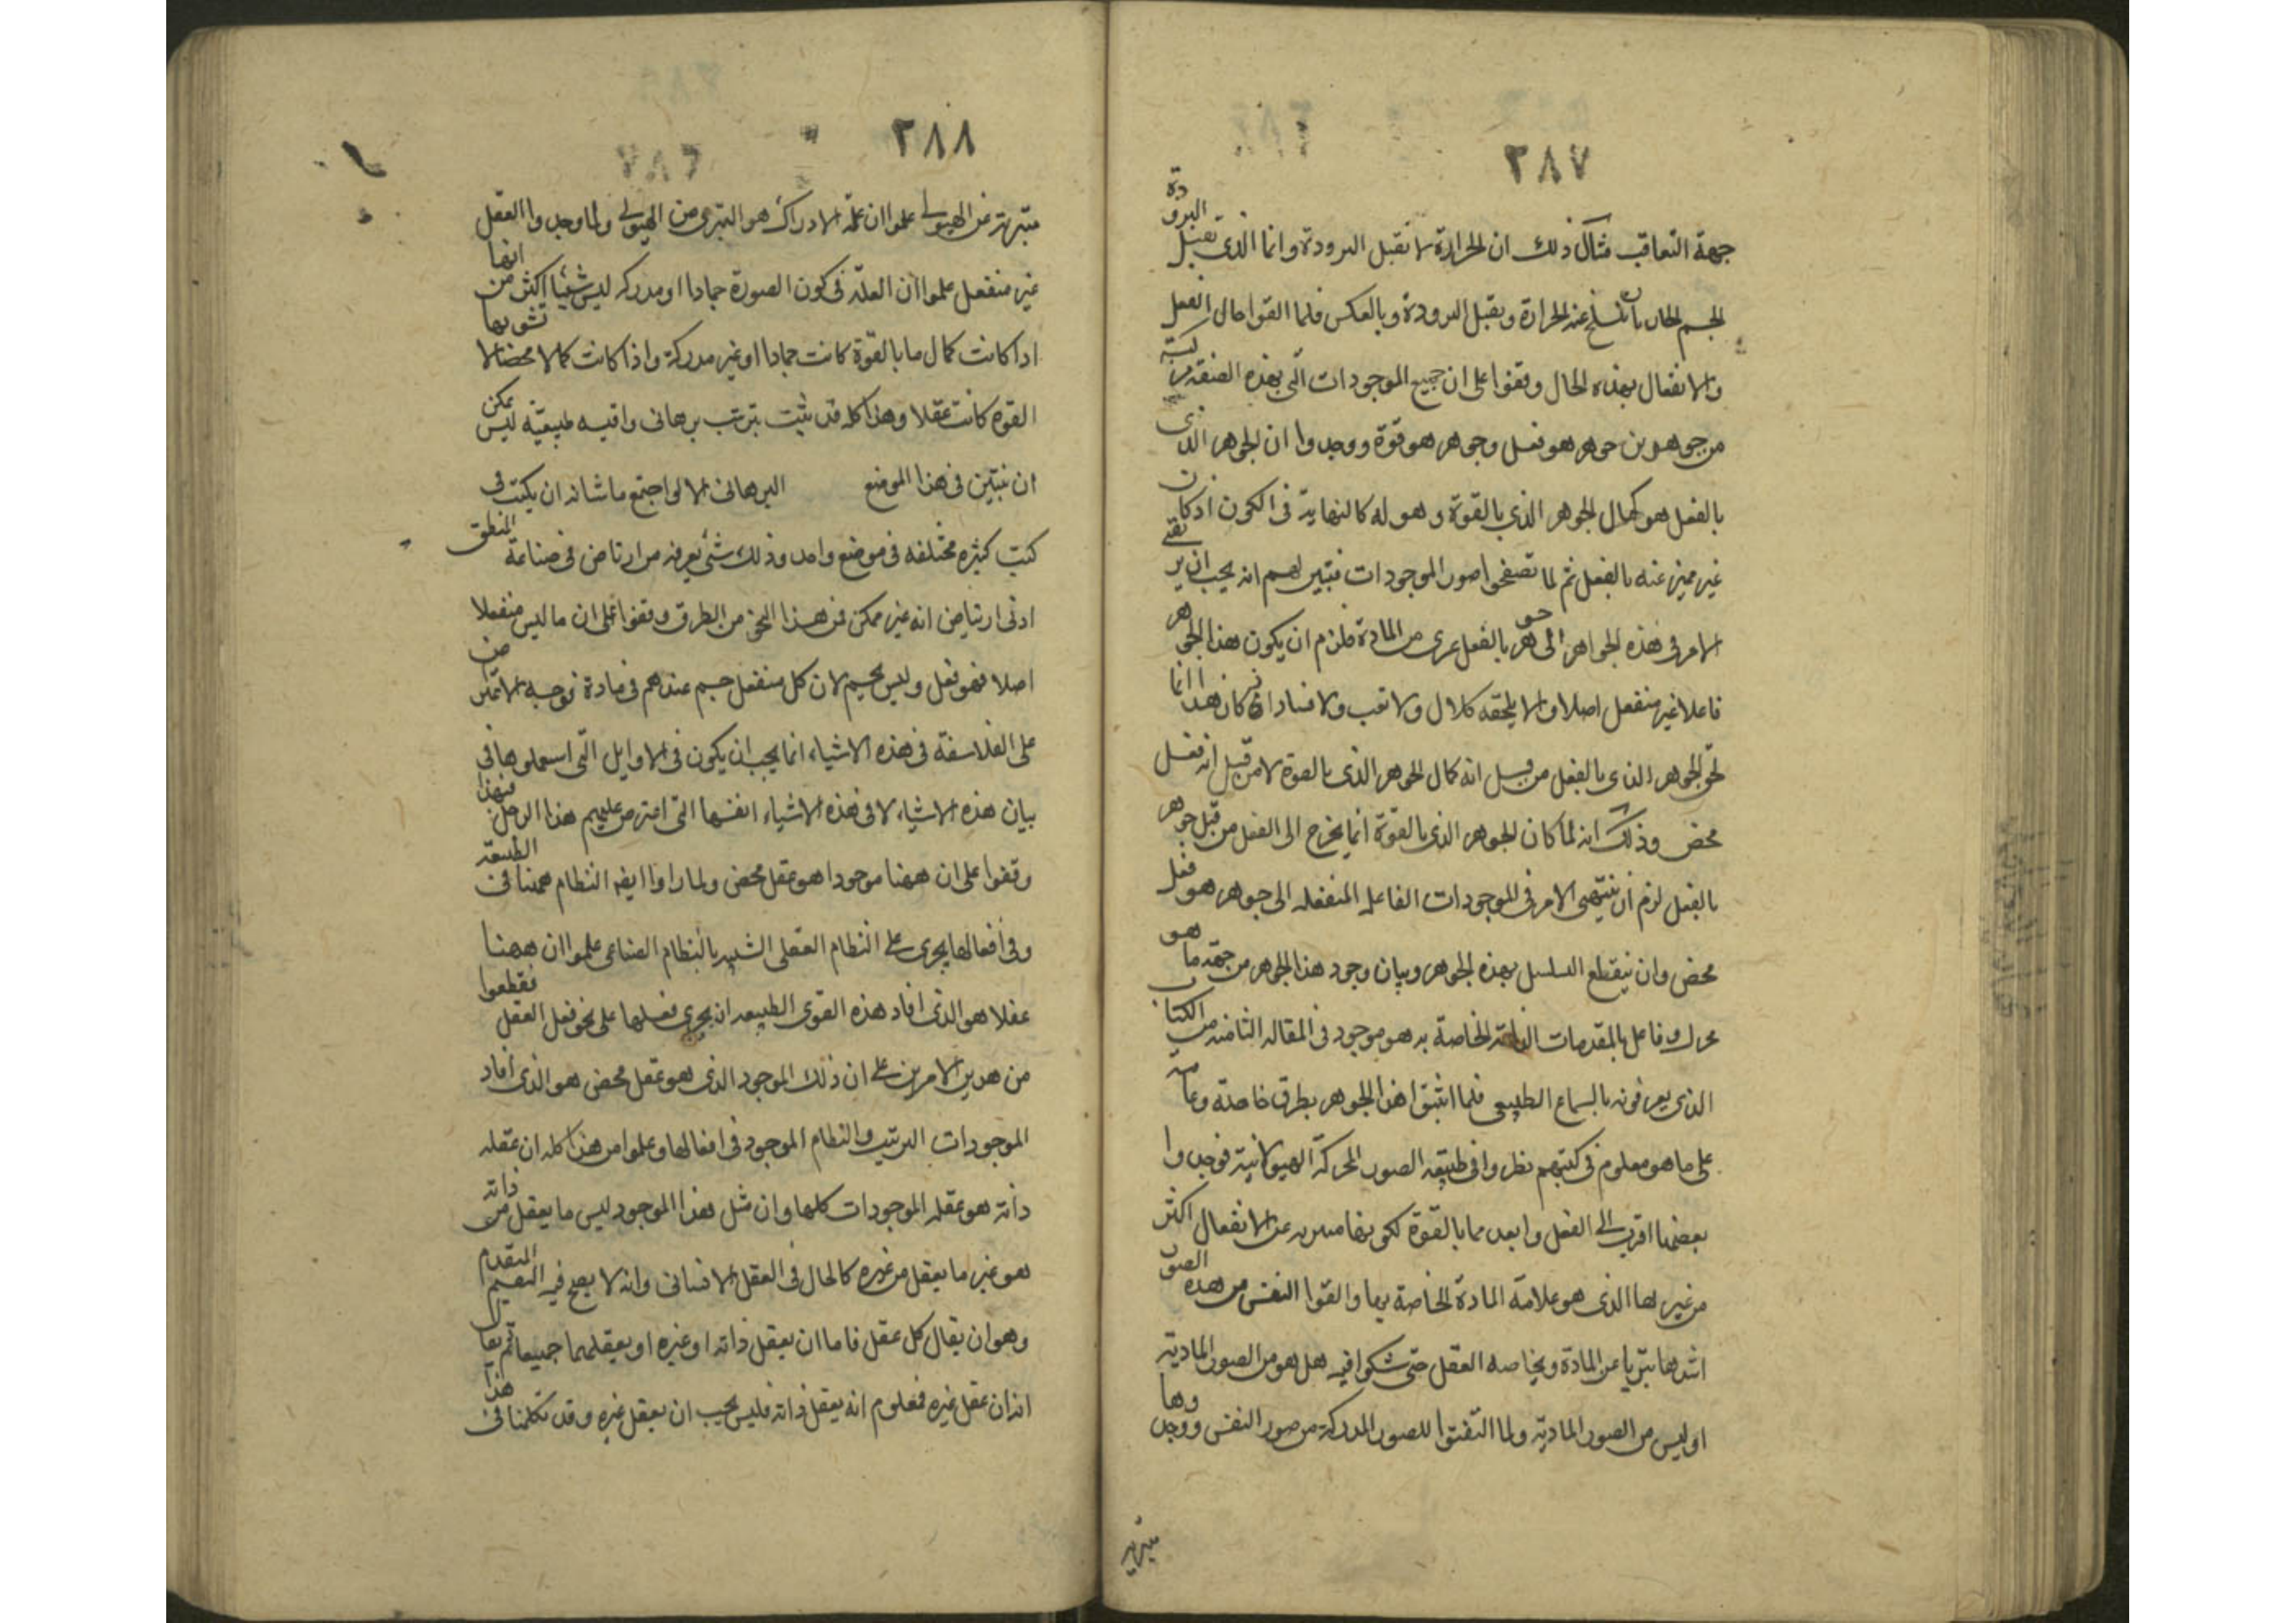 ٢٨٧
جهة التعاقب مثال ذلك ان الحرارة لا تقبل البرودة وانما الذى تقبل البرودة
الجسم الحار بان تنسلخ عنه الحرارة ويقبل البرودة وبالعكس فلما القوا حال الفعل
والانفعال بهذه الحال وقفوا على ان جميع الموجودات التى بهذه الصفة مركبة
من جوهرين جوهر هو فعل وجوهر هو قوة ووجدوا ان الجوهر الذى
بالفعل هو كمال الجوهر الذى بالقوة وهو له كالنهاية فى الكون اذ كان
غير مميز عنه بالفعل ثم لما تصفحوا صور الموجودات فتبين لهم انه يجب ان يرتقى
الامر فى هذه الجواهر الى جوهر بالفعل عرى من المادة فلزم ان يكون هذا الجوهر
فاعلا غير منفعل اصلا والا يلحقه كلال ولا تعب ولا فساد ان كان هذا انما
لحق الجوهر الذى بالفعل من قبل انه كمال الجوهر الذى بالقوة لا من قبل انه فعل
محض وذلك انه لما كان الجوهر الذى بالقوة انما يخرج الى الفعل من قبل جوهر
بالفعل لزم ان ينتهى الامر فى الموجودات الفاعله المنفعله الى جوهر هو فعل
محض وان ينقطع التسلسل بهذه الجوهر وبيان وجود هذا الجوهر من جهة ما هو
محرك وفاعل بالمقدمات الذاتية الخاصة به هو موجود فى المقاله الثامنه من الكتاب
الذى يعرفونه بالسماع الطبيعى فلما اثبتوا هذا الجوهر بطرق خاصة وعامة
على ما هو معلوم فى كتبهم نظروا فى طبيعه الصور المحركة الهيولانية فوجدوا
بعضها اقرب الى الفعل وابعد مما بالقوة لكونها متبرية عن الانفعال اكثر
من غيرها الذى هو علامة المادة الخاصة بها والقوا النفس من هذه الصور
اشدها تبريا عن المادة وبخاصه العقل حتى شكوا فيه هل هو من الصور المادية
او ليس من الصور المادية ولما التفتوا للصور المدركة من صور النفس ووجدوها
متبرية
٢٨٨
متبرية عن الهيولى علموا ان علة الادراك هو التبرى من الهيولى ولما وجدوا العقل
غير منفعل علموا ان العلة فى كون الصورة جمادا او مدركه ليس شيئا اكثر من انها
اذا كانت كمال ما بالقوة كانت جمادا او غير مدركة واذا كانت كمالا محضا لا تشوبها
القوة كانت عقلا وهذا كله قد ثبت بترتيب برهانى واقيسه طبيعية ليس يمكن
ان تتبين فى هذا الموضع البرهانى الا لو اجتمع ما شانه ان يكتب فى
كتب كثيره مختلفه فى موضع واحد وذلك شئ يعرفه من ارتاض فى صناعة المنطق
ادنى ارتياض انه غير ممكن فمن هذا النحو من الطرق وقفوا على ان ما ليس منفعلا
اصلا فهو فعل وليس بجسم لان كل منفعل جسم عندهم فى مادة فوجه الاعتراض
على الفلاسفة فى هذه الاشياء انما يجب ان يكون فى الاوايل التى استعملوها فى
بيان هذه الاشياء لا فى هذه الاشياء انفسها التى اعترض عليهم هذا الرجل فبهذا
وقفوا على ان ههنا موجودا هو عقل محض ولما راوا ايضا النظام ههنا فى الطبيعة
وفى افعالها يجرى على النظام العقلى الشبيه بالنظام الصناعى علموا ان ههنا
عقلا هو الذى افاد هذه القوى الطبيعه ان يجرى فعلها على نحو فعل العقل فقطعوا
من هذين الامرين على ان ذلك الموجود الذى هو عقل محض هو الذى افاد
الموجودات الترتيب والنظام الموجود فى افعالها وعلموا من هذا كله ان عقله
ذاته هو عقله الموجودات كلها وان مثل هذا الموجود ليس ما يعقل من ذاته
هو غير ما يعقل من غيره كالحال فى العقل الانسانى وانه لا يصح فيه التقسيم المتقدم
وهو ان يقال كل عقل فاما ان يعقل ذاته او غيره او يعقلهما جميعا ثم يقال
انه ان عقل غيره فمعلوم انه يعقل ذاته فليس يجب ان يعقل غيره وقد تكلمنا فى هذا